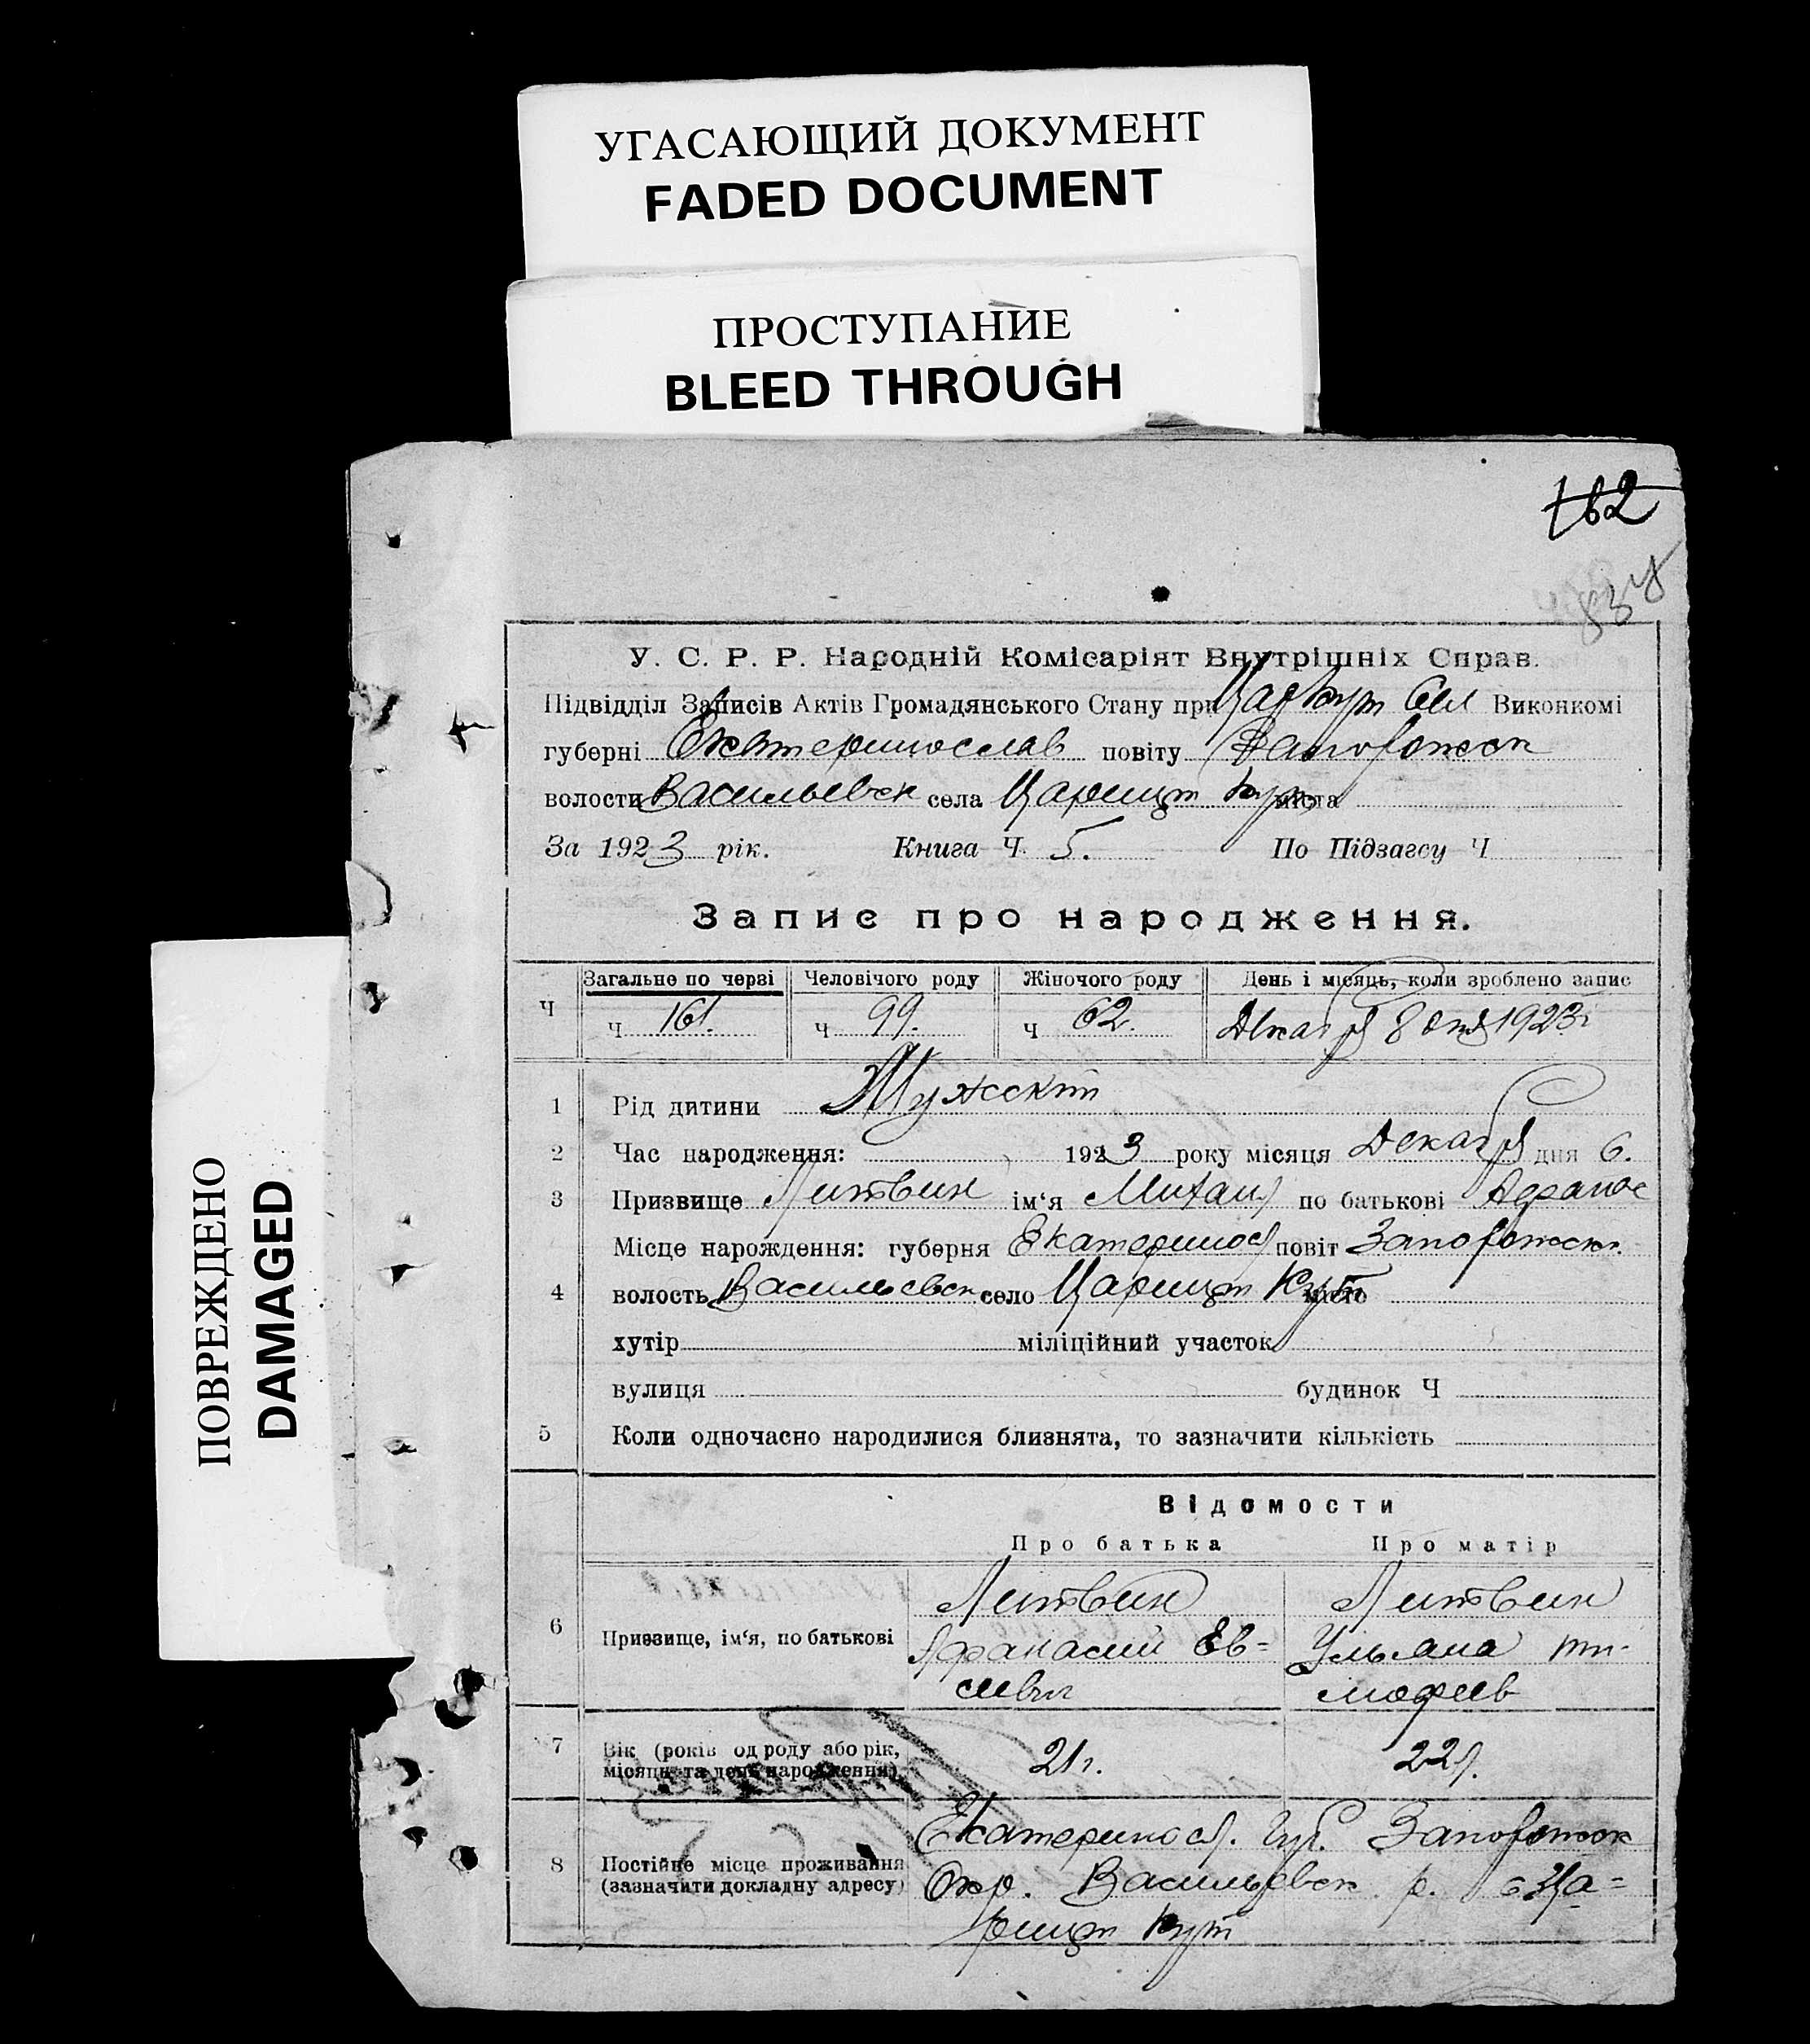 УГАСАЮЩИЙ ДОКУМЕНТ
FADED DOCUMENT
ПРОСТУПАНИЕ
BLEED THROUGH
ПОВРЕЖДЕНО
DAMAGED
162
У. С. Р. Р. Народній Комісаріят Внутрішніх Справ.
Підвідділ Записів Актів Громадянського Стану при Царкут Сел Виконкомі
губерні Екатеринослав повіту Запорожск
волости Васильевск села Царицт Кут міста
За 1923 рік. Книга Ч. 5. По Підзагсу Ч
Запис про народження.
Ч Загальне по черзі Человічого роду Жіночого роду День і місяць, коли зроблено запис
Ч 161. Ч 99. Ч 62. Декабря 8 дня 1923г
1 Рід дитини Мужскит
2 Час народження: 1923 року місяця Декабря дня 6.
3 Призвище Литвин ім‘я Михаил по батькові Афанас
Місце нарождення: губерня Екатериносл повіт Запорожск.
4 волость Васильевск село Царицт Кут місто
хутір міліційний участок
вулиця будинок Ч
5 Коли одночасно народилися близнята, то зазначити кількість
Відомости
Про батька Про матір
6 Призвище, ім‘я, по батькові
Литвин Литвин
Афанасий Ев= Ульяна Ти-
сивил мофеев
7 Вік (років од роду або рік, місяць та день народження) 21г. 22г.
8 Постійне місце проживання (зазначити докладну адресу)
Екатериносл. Губ. Запорожск
Окр. Васильевск р. с Ца=
рицт Кут